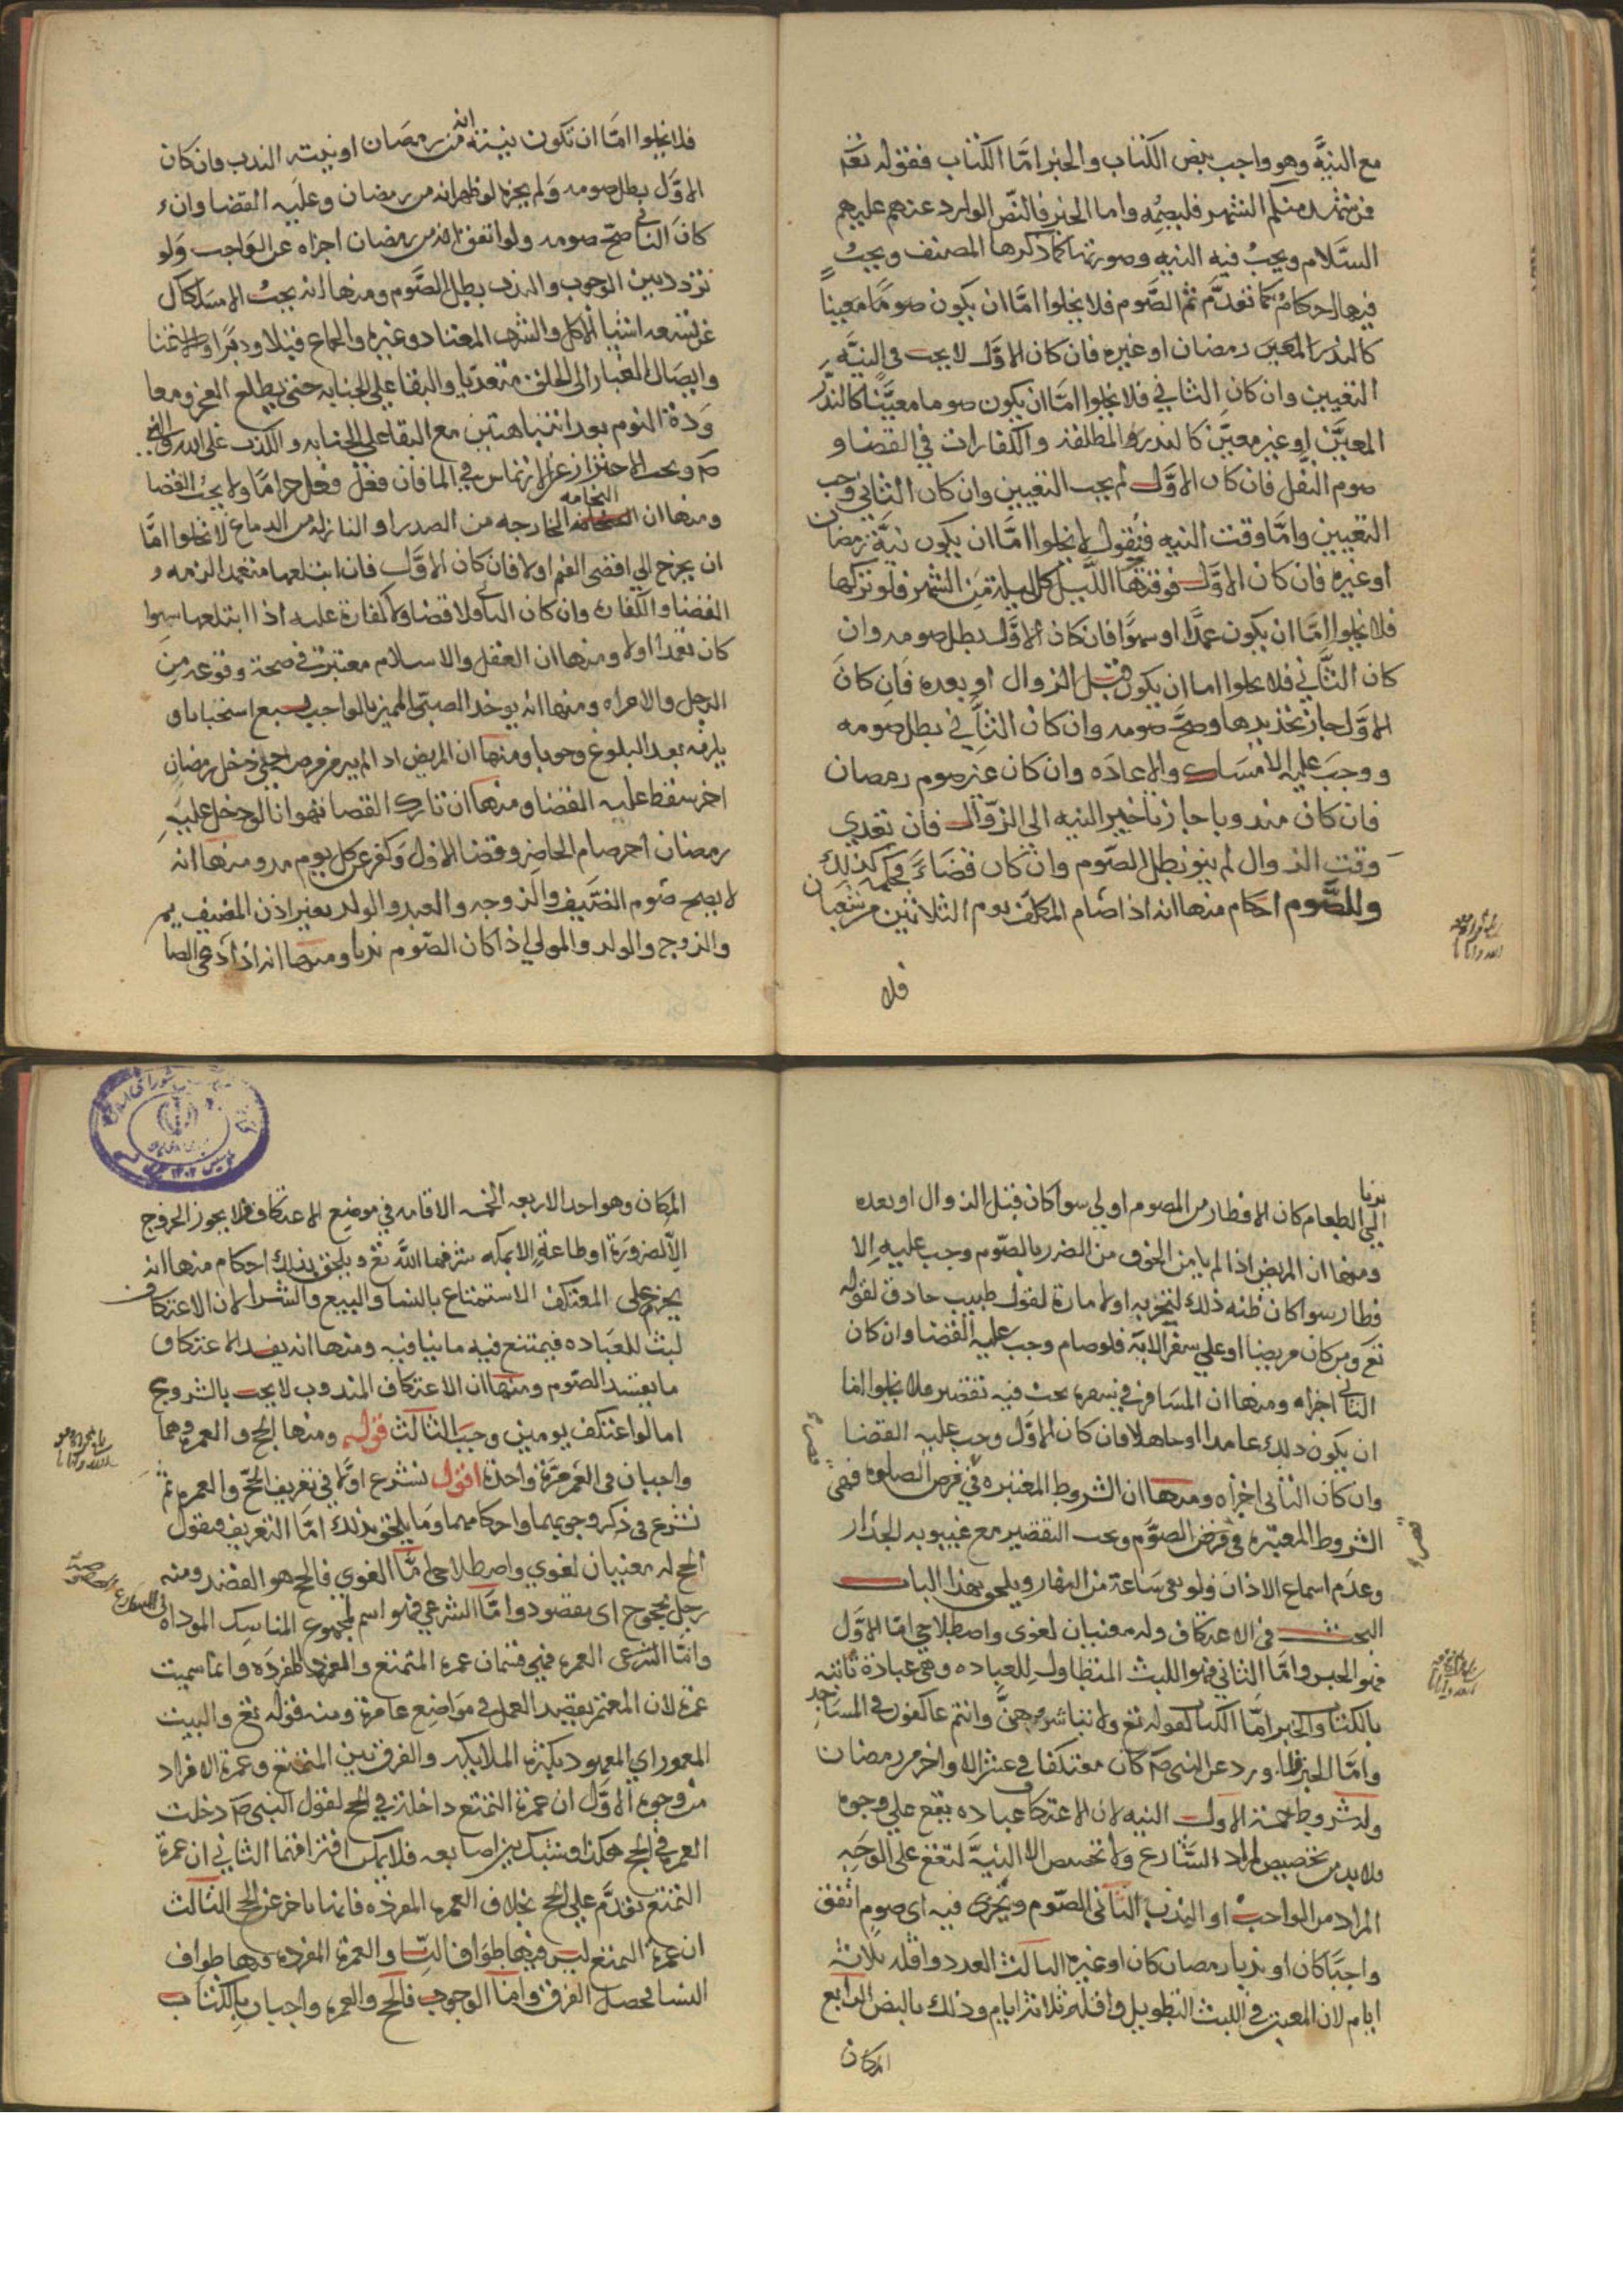 مع النيَّة وهو واجب بنص الكتاب والخبر امَّا الكتاب فقوله تعَ
فمن شهد منكم الشهر فليصُمه واما الخبر فالنّص الوارد عنهم عليهم
السَّلام ويجبُ فيه النيه وصورتها كما ذكرها المصنف ويجبُ
فيها احكام كما تقدَّم ثم الصَّوم فلا يخلوا امَّا ان يكون صومًا معينًا
كالنذر المعين ورمضان او غيره فان كان الاوَّل لا يجب في النيَّه
التعيين وان كان الثاني فلا يخلوا امَّا ان يكون صوما معيَّنا كالنذر
المعيَّن او غير معيّن كالنذر المطلقة والكفارات في القضا و
صوم النفل فان كان الاوَّل لم يجب التعيين وان كان الثاني وجب
التعيين وامَّا وقت النيه فنقول لا يخلوا امَّا ان يكون نيَّة رمضان
او غيره فان كان الاوَّل فوقتها اللَّيل كل ليلة من الشهر فلو تركها
فلا يخلوا امَّا ان يكون عمدًا او سهوًا فان كان الاوَّل بطل صومه وان
كان الثَّاني فلا يخلوا اما ان يكون قبل الزوال او بعده فان كان
الاوَّل جاز تجديدها وصحَّ صومه وان كان الثاَّني بطل صومه
ووجبَ عليه الامسَاك والاعادَه وان كان غير صوم رمضان
فان كان مندوبا جاز تاخير النيه الى الزوّال فان تعدي
وقت الزوال لم ينو بطل الصَّوم وان كان قضَاءً فحكمه كذلك
وللصَّوم احكام منها انه اذا صام المكلف يوم الثلاثين من شعبان
فلا
فلا يخلوا امَّا ان تكون نيته انه من رمضان او نيته الندب فان كان
الاوَّل بطل صومه وَلم يجزه لو ظهر انه من رمضان وعليه القضا وان
كان الثاني صحّ صومه ولو اتفق انه من رمضان اجزاه عن الوَاجب وَلو
تردد بين الوجوب والندب بطل الصَّوم ومنها انه يجبُ الامسَاك
عن تسعه اشيا الاكل والشرب المعتاد وغيره والجماع قبلا ودبرًا والاستمنا
وايصَال الغبار الى الحلق متعديا والبقا على الجنابه حتى يطلع الفجر ومعا
وَدة النوم بعد انتباهتين مع البقا على الجنابه والكذب على الله والنبي
صم ويجب الاحتراز عن الارتماس في الما فان فعل فعل حرامًا ولا يجبُ القضا
ومنها ان النخامه الخارجه من الصدر او النازله من الدماغ لا يخلوا امَّا
ان يخرج الي اقصى الفم اولا فان كان الاوَّل فان ابتلعها متعمدا لزمه
القضا والكفارة وان كان الثاني فلا قضا ولا كفارة عليه اذا ابتلعها سهوا
كان تعمدا اولا ومنها ان العقل والاسلام معتبرة في صحة وقوعه من
الرجل والامراه ومنها انه يوخذ الصبي المميز بالواجب لسبع استحبابا و
يلزمه بعد البلوغ وجوبا ومنها ان المريض اذا لم يبر من مرضه حتي دخل رمضان
اخر سقط عليه القضا ومنها ان تارك القضا تهوانا لو دخل عليه
رمضان اخر صام الحاضر وقضا الاول وَكفر عن كل يوم مد ومنها انه
لا يصح صَوم الضيف والزوجه والعبد والولد بغير اذن المضيف
والزوج والوالد والمولي اذا كان الصّوم ندبا ومنها انه اذا دعي الصا
ندبا
الي الطعام كان الافطار من الصوم اولي سوا كان قبل الزوال او بعده
ومنها ان المريض اذا لم يامن الخوف من الضرر بالصّوم وجب عليه الا
فطار سوا كان ظنه ذلك لتجربه او لامارة لقول طبيب حاذق لقوله
تعَ ومن كان مريضا او علي سفر الايَة فلو صام وجب عليه القضا وان كان
الثاني اجزاه ومنها ان المسَافر في سفره يجب فيه تقصير فلا يخلوا اما
ان يكون ذلك عامدا او جاهلا فان كان الاوَّل وجب عليه القضا
وان كان الثاني اجزأه ومنها ان الشروط المعتبره في قصر الصلوة فهي
الشروط المعتبره في قصر الصوَّم ويجب التقصير مع غيبوبه الجدار
وعدَم اسماع الاذان ولو بقي سَاعة من النهار ويلحق بهذا الباب
البحث في الاعتكاف وله معنيان لغوى واصطلاحي امّا الاوَّل
فهو الحبس وامَّا الثاني فهو اللبث المتطاول للعباده وهي عبادة ثابته
بالكتاب والخبر امَّا الكتاب لقوله تعَ ولا تباشروهنَّ وانتم عاكفون في المسَاجد
وامَّا الخبر فلما ورد عن النبي صم كان معتكفا في عشر الاواخر من رمضان
وله شروط خمسة الاول النيه لان الاعتكاف عباده يقع علي وجوه
فلا بد من تخصيص لمراد الشَّارع ولا تخصص الا النيَّة لتقع على الوجَه
المراد من الواجب او الندب الثاني الصّوم ويُجزى فيه اى صوم اتفق
واجبًا كان او ندبا رمضان كان او غيره الثالث العدد واقله ثلاثة
ايام لان المعتبر في اللبث التطويل واقله ثلاثة ايام وذلك بالنص الرابع
المكان
المكان وهو احد الاربعه الخمسه الاقامه في موضع الاعتكاف فلا يجوز الخروج
الاّ لضرورَة او طاعةٍ الا بمكه شرفها اللَّه تعَ ويلحق بذلك احكام منها انه
يحرم على المعتكف الاستمتاع بالنسا والبيع والشرا لان الاعتكاف
لبث للعبَاده فيمتنع فيه ما ينافيه ومنها انه يفسد الاعتكاف
ما يفسد الصّوم ومنها ان الاعتكاف المندوب لا يجب بالشروع
اما لو اعتكف يومين وجبَ الثالث قوله ومنها الحج والعمره وهما
واجبان في العُمر مرَّة واحدة اقول نشرع اوَّلا في تعريف الحجّ والعمره ثمَّ
نشرع في ذكر وجوبهما واحكامهما وَما يلحق بذلك امَّا التعريف فنقول
الحج له معنيان لغوي واصطلاحي امَّا اللغوي فالحج هو القصد ومنه
رجل محجوج اى مقصود وامَّا الشرعي فهو اسم لمجموع المناسك الموداه
وامَّا الشرعى العمره فهي قسمان عمرة المتمتع والعمره المفردَه وانما سميت
عمرة لان المعتمر يقصد العمل في مَوَاضع عامرة ومنه قوله تعَ والبيت
المعمور اي المعمود بكثرة الملايكه والفرق بين المتمتع وعمرة الافراد
من وجوه الاوَّل ان عمرة التمتع داخلة في الحج لقول النبي صم دخلت
العمره في الحج هكذا وشبك بين اصابعه فلا يمكن افتراقهما الثاني ان عمرة
التمتع تقدَّم علي الحج بخلاف العمره المفرده فانها تاخر عن الحج الثالث
ان عمرة التمتع ليس فيها طوَاف النّسا والعمرة المفرده فيها طواف
النسا فحصل الفرق وامَّا الوجوب فالحج والعمره واجبان بالكتاب